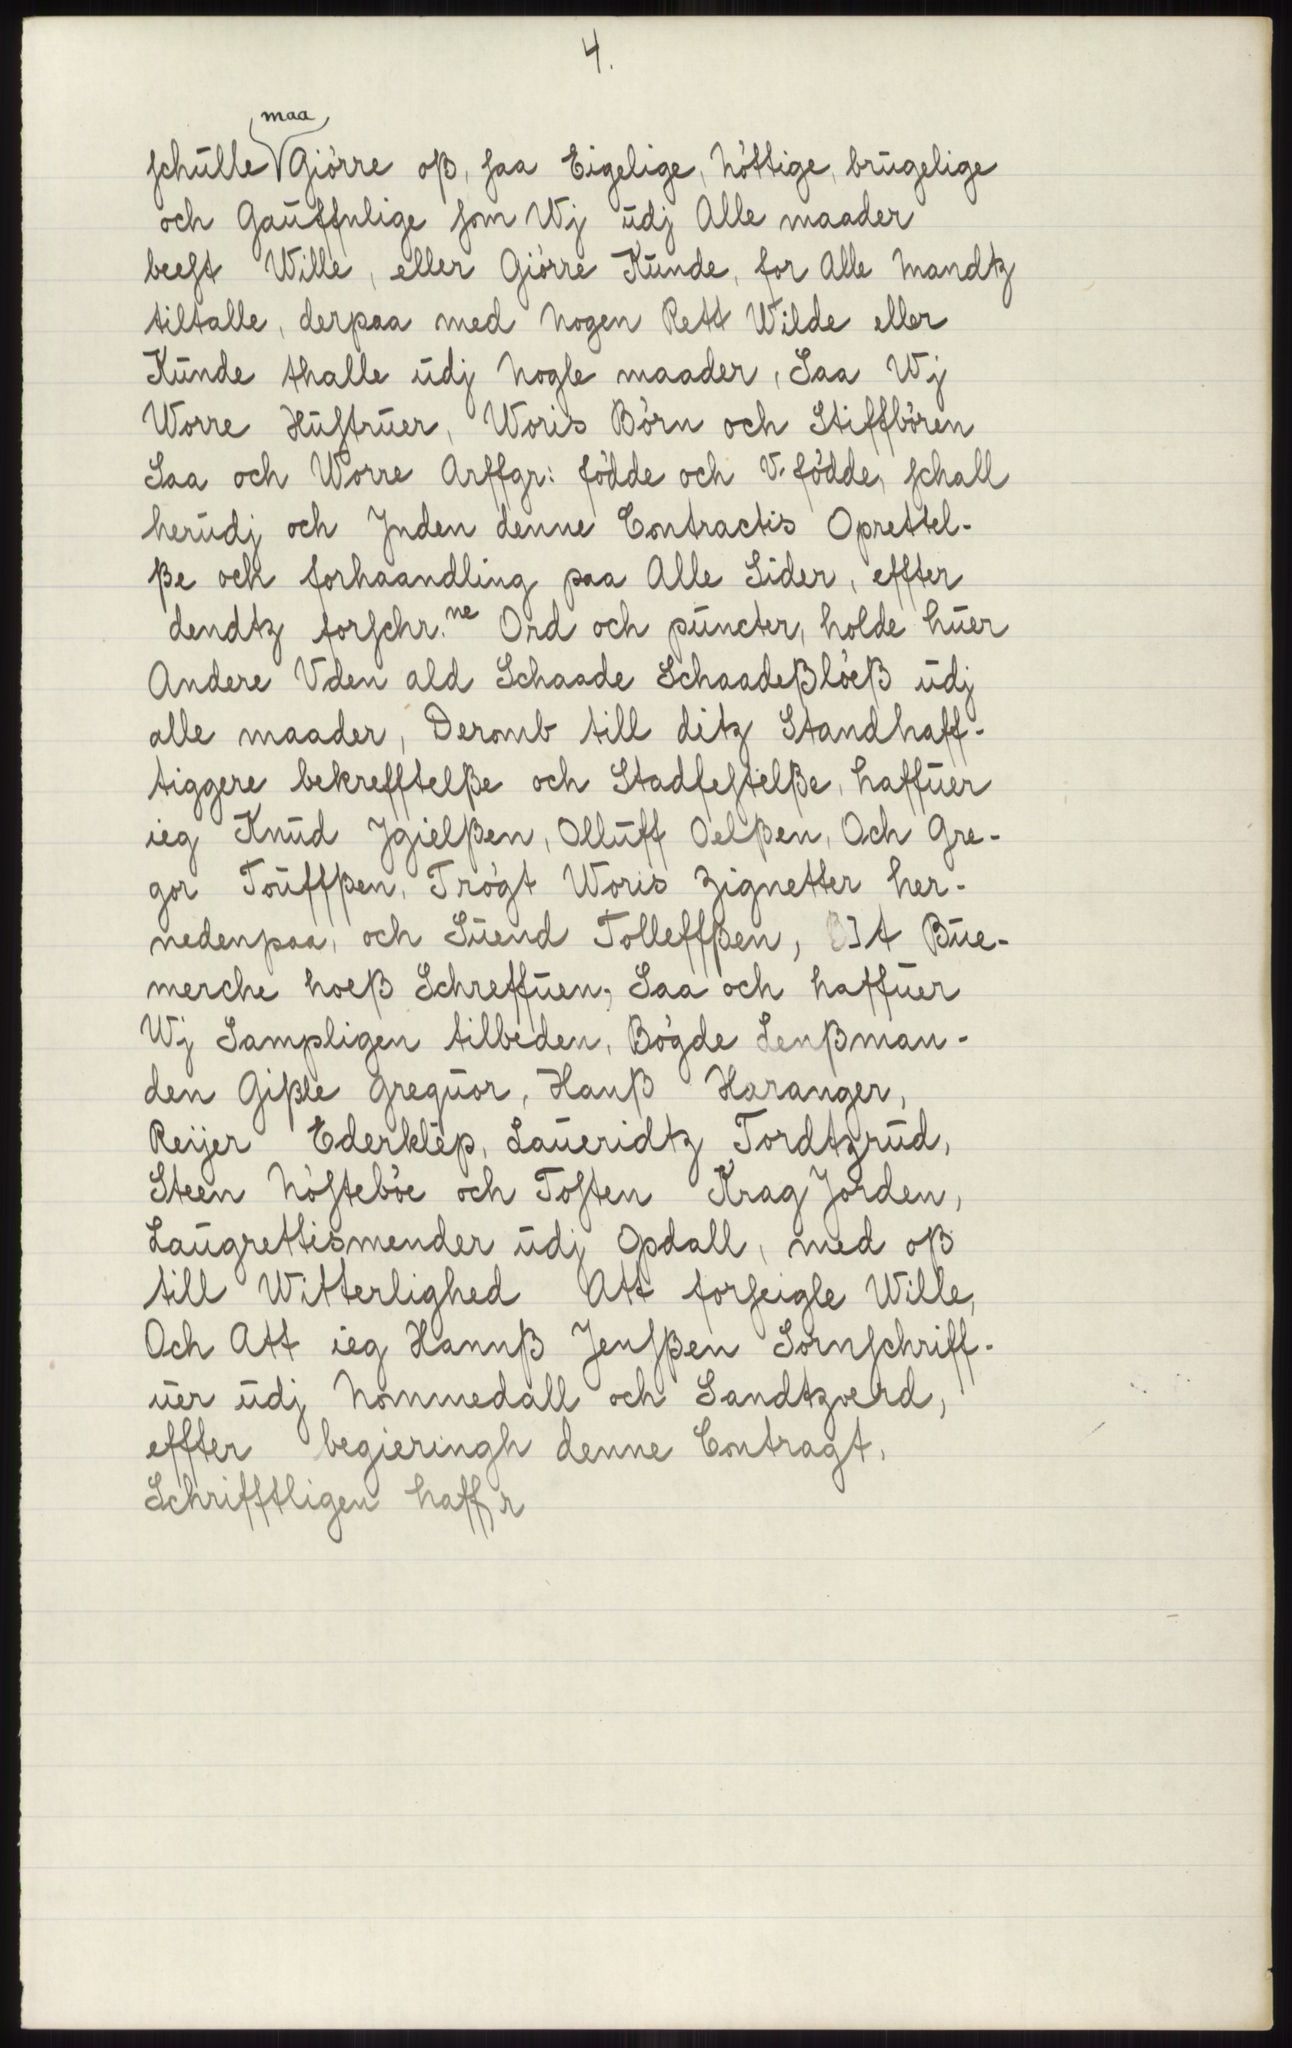 4.
maa
schulle Giörre oß, saa Eigelige, Nöttige, brugelige
och Gauffnlige som Wj udj Alle maader
beest Wille, eller Giörre Kunde, for Alle Mandtz
tiltalle, derpaa med Nogen Rett Wilde eller
Kunde thalle udj Nogle maader, Saa Wj
Worre Hustruer, Woris Börn och Stiffbören
Saa och Worre Arffgr: födde och V-födde, schall
herudj och Jnden denne Contractis Oprettel-
ße och forhaandling paa Alle Sider, effter
dendtz forschr.ne Ord och puncter, holde huer
Andere Vden ald Schaade Schaadeßlöeß udj
alle maader, Deromb till ditz Standhaff-
tiggere bekrefftelße och Stadfestelße, haffuer
ieg Knud Jgielßen, Olluff Oelßen, Och Gre-
gor Touffßen, Trögt Woris Zignetter her-
nedenpaa, och Suend Tolleffßen, Bue-
merche hoeß Schreffuen, Saa och haffuer
Wj Sampligen tilbeden, Bögde Lenßman-
den Gißle Grequor, Hanß Haranger,
Reijer Ederklep, Laueridtz Tordtzrud,
Steen Nösteböe och Tosten Kragjorden,
Laugrettismender udj Opdall, med oß
till Witterlighed Att forseigle Wille,
Och Att ieg Hannß Jensßen Sornschriff-
uer udj Nommedall och Sandtzverd,
effter begieringh denne Contragt,
Schrifftligen haffr